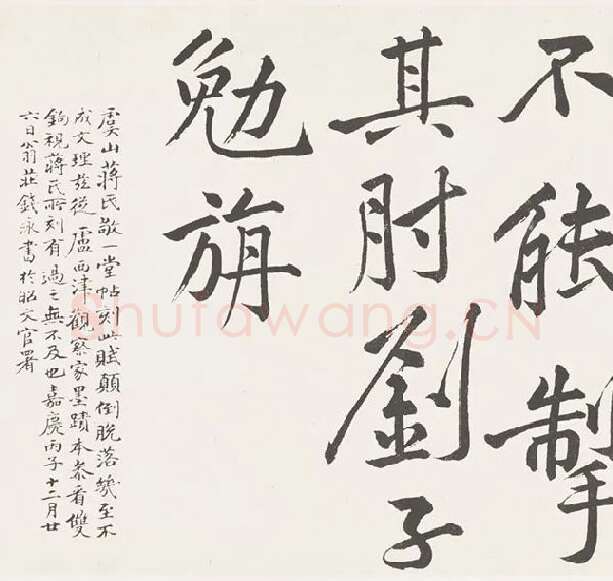 不能掣
其肘劉子
勉旃
虞山蔣氏敬一堂帖刻此賦顛倒脫落幾至不
成文理茲從盧西津觀察家墨蹟本叅看雙
鉤視蔣氏所刻有過之無不及也嘉慶丙子十二月廿
六日翁莊錢泳書於昭文官署
Shufawang.CN